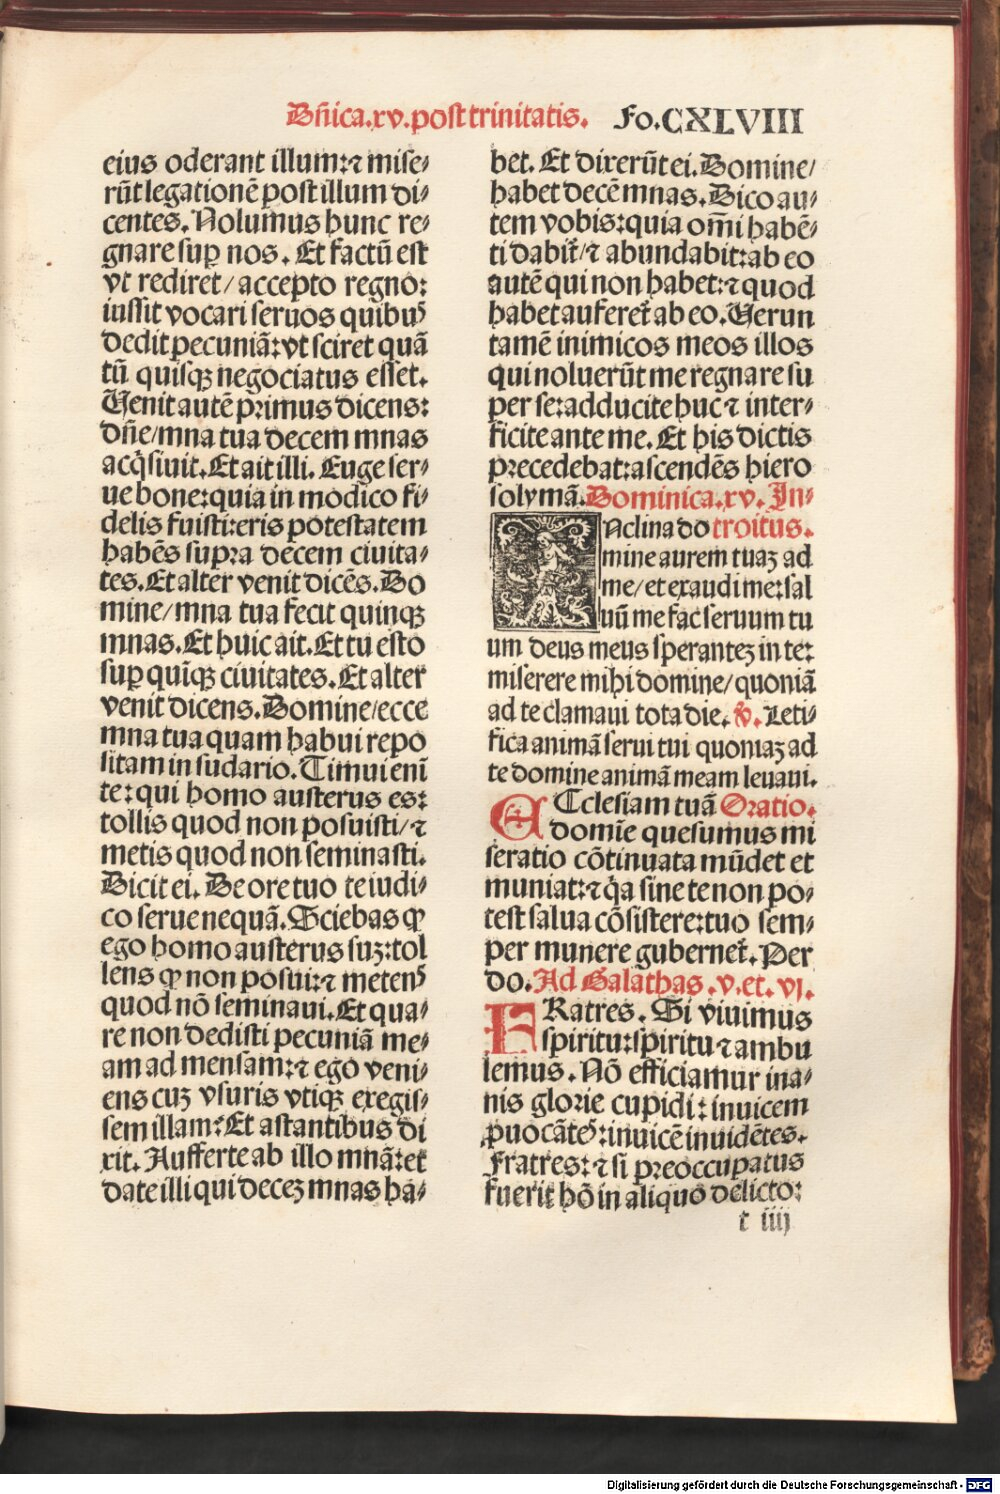 Dñica.xv.post trinitatis. Fo.CXLVIII
eius oderant illum:⁊ mise⸗
rūt legationē post illum di⸗
centes. Nolumus hunc re⸗
gnare suꝑ nos. Et factū est
vt rediret/ accepto regno:
iussit vocari seruos quibꝰ
dedit pecuniā: vt sciret quā
tū quisqꝫ negociatus esset.
Uenit autē primus dicens:
dñe/ mna tua decem mnas
acq̄siuit. Et ait illi. Euge ser⸗
ue bone: quia in modico fi⸗
delis fuisti: eris potestatem
habēs supra decem ciuita⸗
tes. Et alter venit dicēs. Do
mine/ mna tua fecit quinqꝫ
mnas. Et huic ait. Et tu esto
suꝑ quīqꝫ ciuitates. Et alter
venit dicens. Domine/ ecce
mna tua quam habui repo
sitam in sudario. Timui enī
te: qui homo austerus es:
tollis quod non posuisti/ ⁊
metis quod non seminasti.
Dicit ei. De ore tuo te iudi⸗
co serue nequā. Sciebas ꝙ
ego homo austerus suꝫ: tol
lens ꝙ non posui: ⁊ metenꝭ
quod nō seminaui. Et qua⸗
re non dedisti pecuniā me⸗
am ad mensam: ⁊ ego veni⸗
ens cuꝫ vsuris vtiqꝫ exegis⸗
sem illam: Et astantibus di
xit. Aufferte ab illo mnā: et
date illi qui deceꝫ mnas ha⸗
bet. Et dixerūt ei. Domine/
habet decē mnas. Dico au⸗
tem vobis: quia om̄i habē⸗
ti dabit̄/ ⁊ abundabit: ab eo
autē qui non habet: ⁊ quod
habet auferet̄ ab eo. Uerun
tamē inimicos meos illos
qui noluerūt me regnare su
per se: adducite huc ⁊ inter⸗
ficite ante me. Et his dictis
precedebat: ascendēs hiero
solymā. Dominica.xv. In⸗
Nclina do troitus.
mine aurem tuaꝫ ad
me/ et exaudi me: sal
uū me fac seruum tu
um deus meus speranteꝫ in te:
miserere mihi domine/ quoniā
ad te clamaui tota die. ℣. Leti⸗
fica animā serui tui quoniaꝫ ad
te domine animā meam leuaui.
ECclesiam tuā Oratio.
domīe quesumus mi
seratio cōtinuata mūdet et
muniat: ⁊ q̄a sine te non po⸗
test salua cōsistere: tuo sem⸗
per munere gubernet̄. Per
do. Ad Galathas.v.et.vj.
FRatres. Si viuimus
spiritu: spiritu ⁊ ambu
lemus. Nō efficiamur ina⸗
nis glorie cupidi: inuicem
ꝓuocātes: inuicē inuidētes.
Fratres: ⁊ si preoccupatus
fuerit hō in aliquo delicto:
t iiij
Digitalisierung gefördert durch die Deutsche Forschungsgemeinschaft - DFG